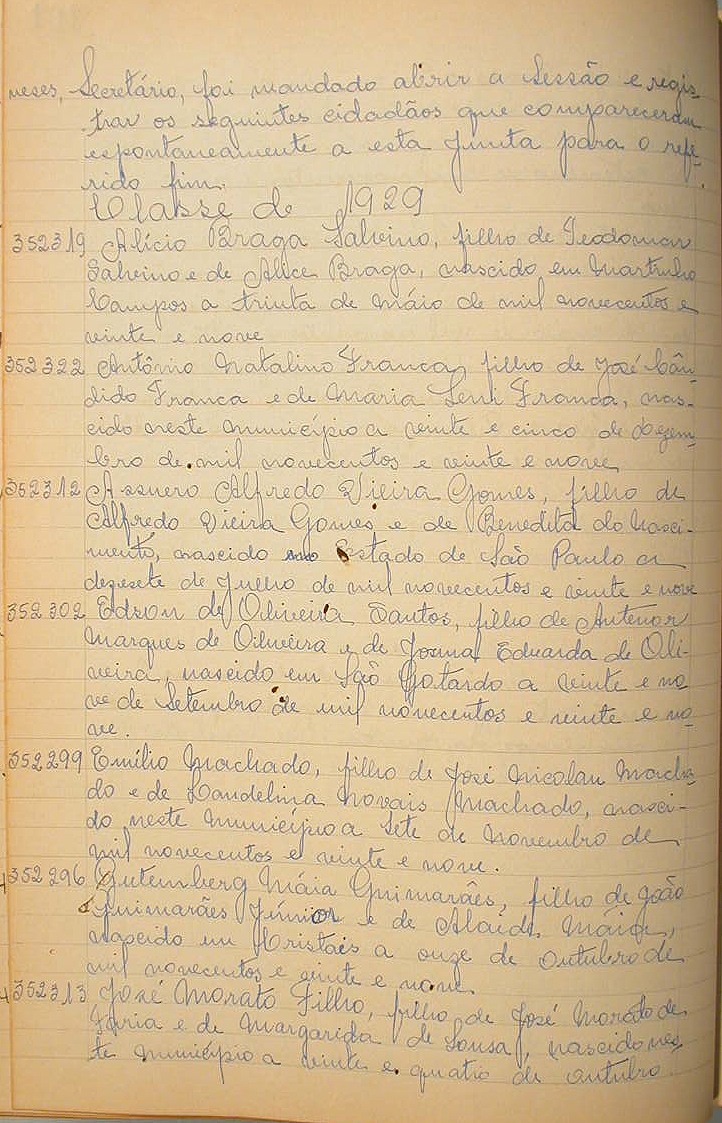 neses, Secretário, foi mandado abrir a Sessão e regis-
trar os seguintes cidadãos que compareceram
espontaneamente a esta Junta para o refe-
rido fim.
Classe de 1929
352319 Alício Braga Salvino, filho de Teodomiro
Salvino e de Alice Braga, nascido em Martinho
Campos a trinta de máio de mil novecentos e
vinte e nove
352322 Antônio Natalino Franca, filho de José Cân-
dido Franca e de Maria Franca, nas-
cido neste município a vinte e cinco de dezem-
bro de mil novecentos e vinte e nove
352312 Assuero Alfredo Vieira Gomes, filho de
Alfredo Vieira Gomes e de Benedita do Nasci-
mento, nascido no Estado de São Paulo a
dezesete de Julho de mil novecentos e vinte e nove
352302 Edson de Oliveira Santos, filho de Antenor
Marques de Oliveira e de Eduarda de Oli-
veira, nascido em São Gotardo a vinte e no
ve de Setembro de mil novecentos e vinte e no-
ve.
352299 Emílio Machado, filho de José Nicolau Macha-
do e de Landelina Novais Machado, nasci-
do neste município a Sete de Novembro de
mil novecentos e vinte e nove.
352296 Gutemberg Máia Guimarães, filho de João
Guimarães Júnior e de Alaíde Máia,
nascido em Cristais a onze de Outubro de
mil novecentos e vinte e nove.
352313 José Morato Filho, filho de José Morato de
Faria e de Margarida de Sousa, nascido nes-
te município a vinte e quatro de outubro